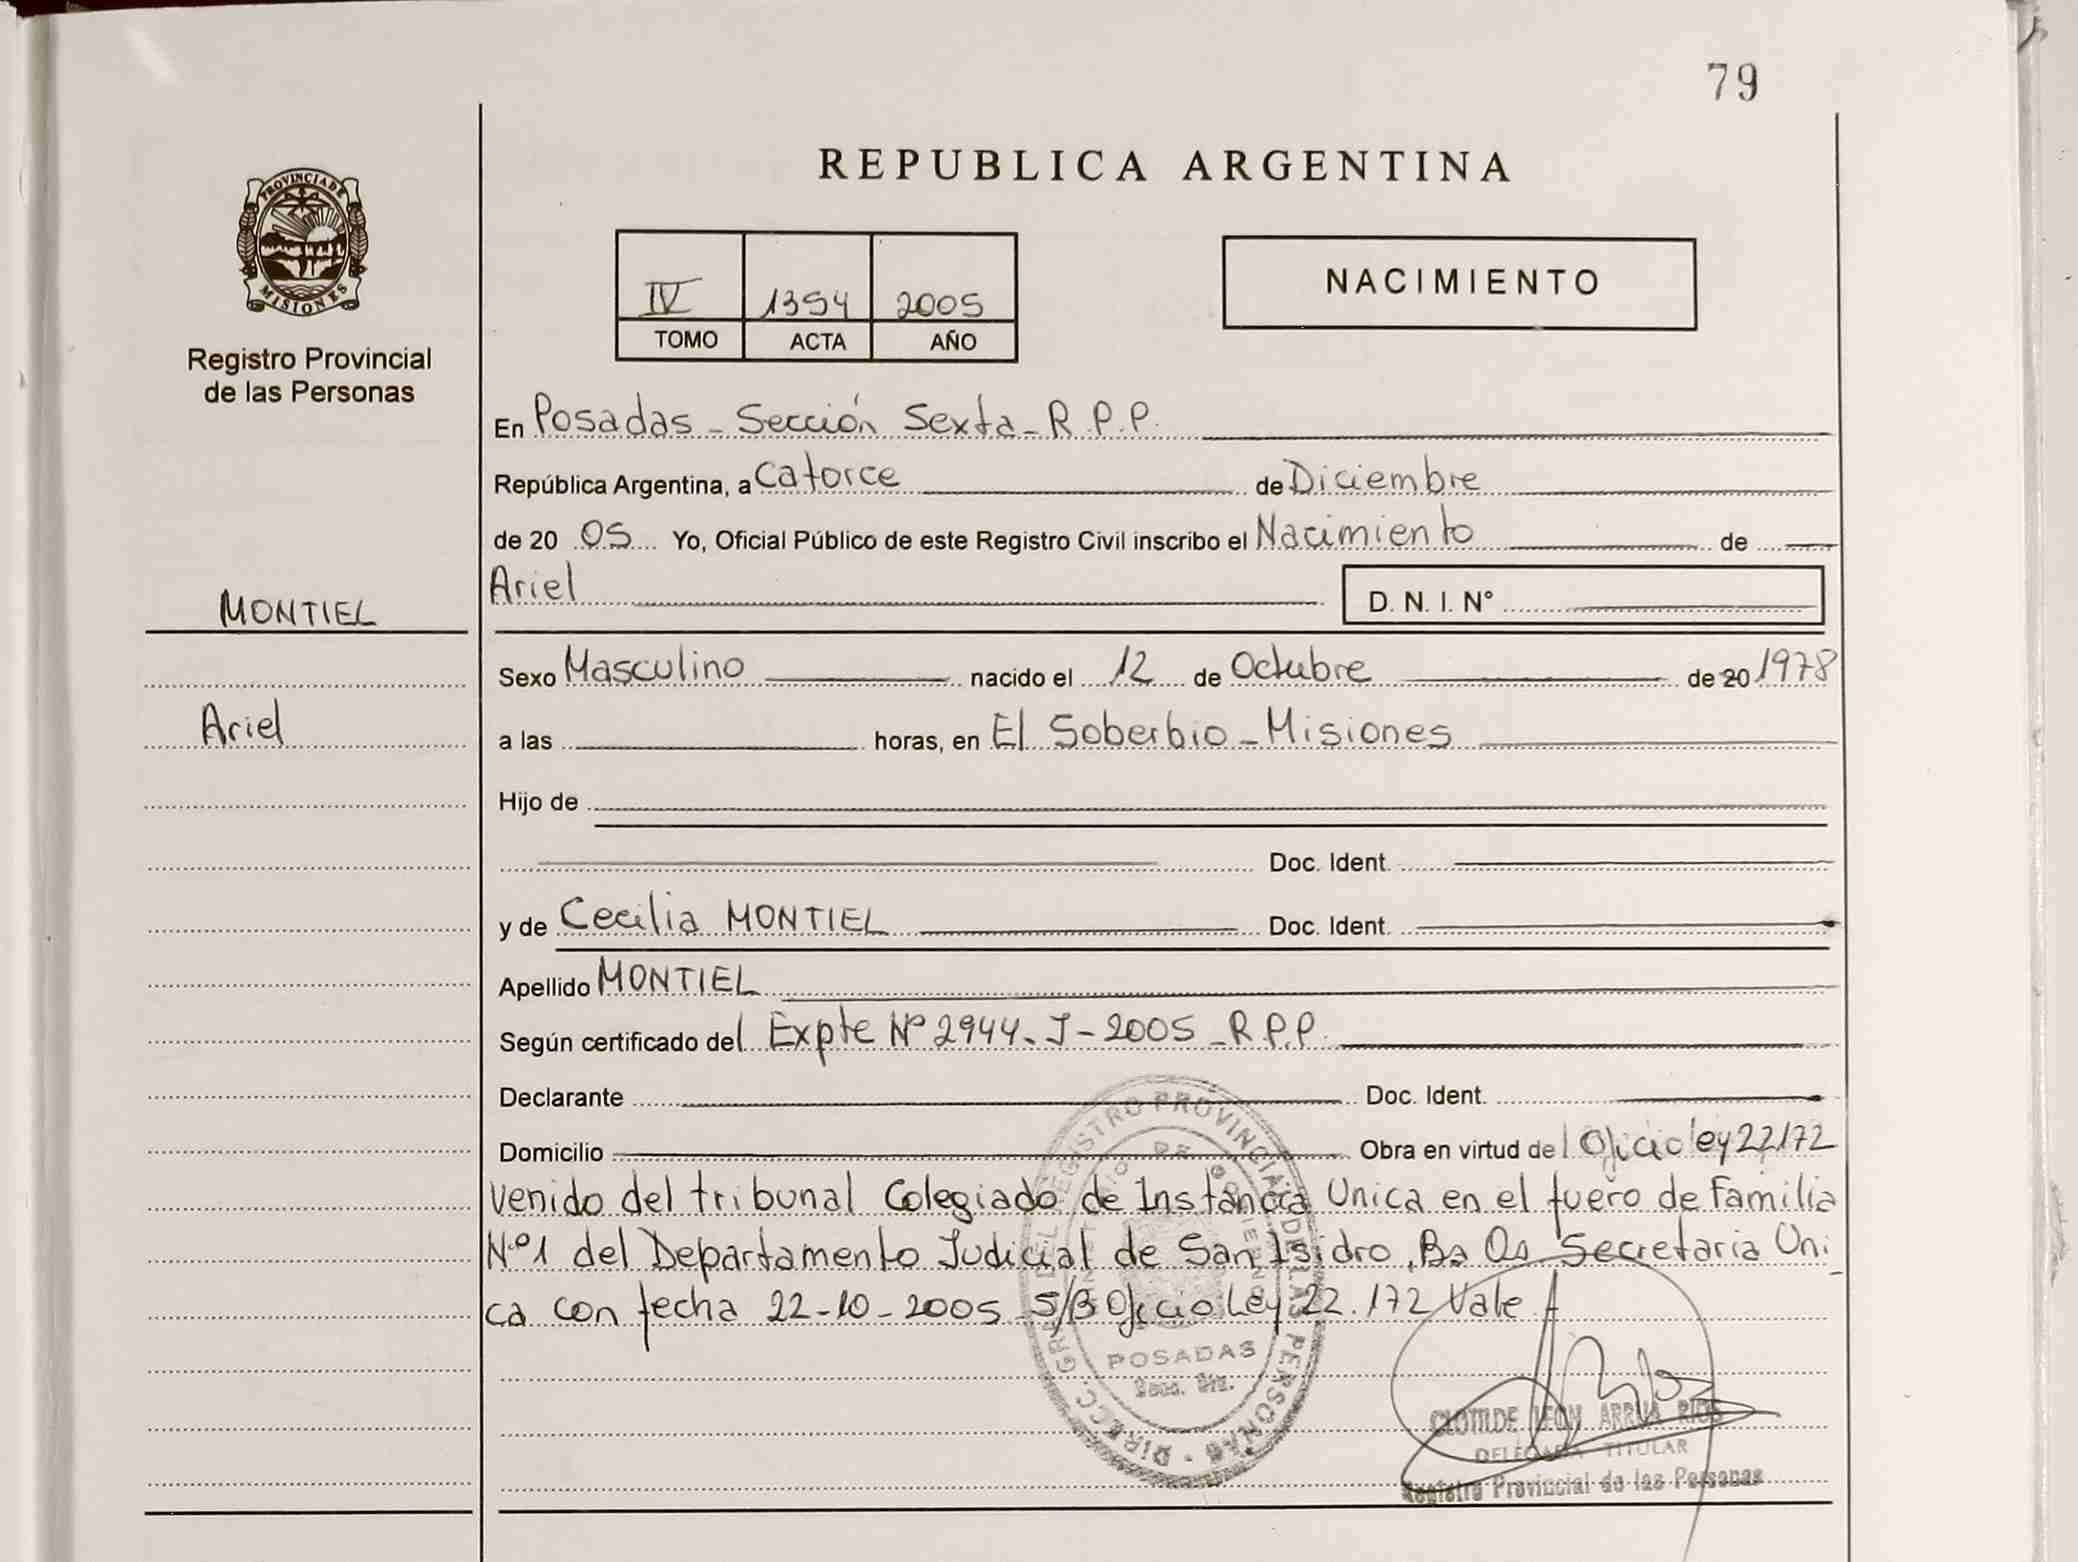 79
REPUBLICA ARGENTINA
PROVINCIA DE
MISIONES
Registro Provincial
de las Personas
IV 1354 2005
TOMO ACTA AÑO
NACIMIENTO
En Posadas - Sección Sexta - R.P.P.
República Argentina, a Catorce de Diciembre
de 20 05 Yo, Oficial Público de este Registro Civil inscribo el Nacimiento de
Ariel D. N. I. N°
MONTIEL
Ariel
Sexo Masculino nacido el 12 de Octubre de 20 1978
a las horas, en El Soberbio - Misiones
Hijo de
Doc. Ident.
y de Cecilia MONTIEL Doc. Ident.
Apellido MONTIEL
Según certificado del Expte Nº 2944-J-2005-R.P.P.
Declarante Doc. Ident.
Domicilio Obra en virtud del Oficio ley 22172
venido del tribunal Colegiado de Instancia Unica en el fuero de Familia
Nº1 del Departamento Judicial de San Isidro, Bs As Secretaria Uni-
ca con fecha 22-10-2005 - S/B Oficio Ley 22.172 Vale
DIRECC. GRAL. DEL REGISTRO PROVINCIAL DE LAS PERSONAS
POSADAS
CLOTILDE LEON ARRUA RIOS
DELEGADA TITULAR
Registro Provincial de las Personas